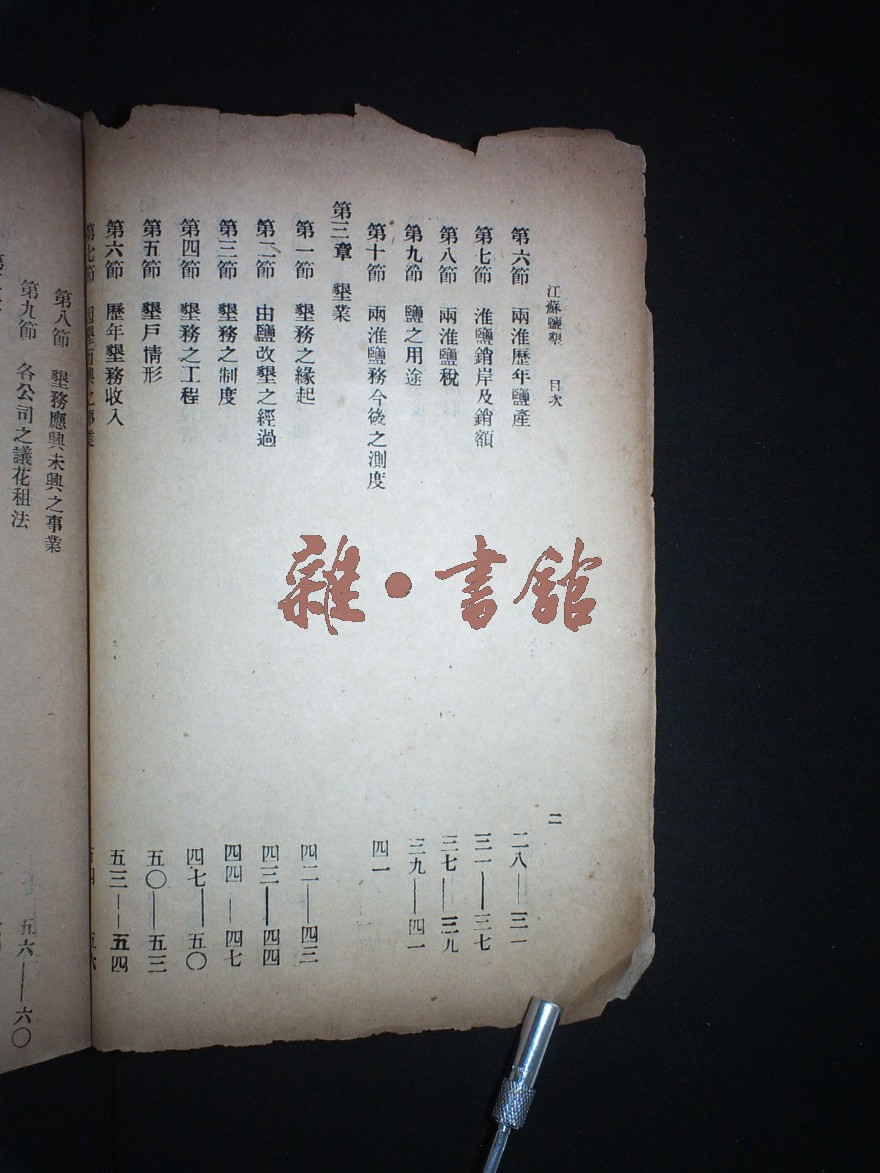 江蘇鹽墾 目次 二
第六節 兩淮歷年鹽產 二八——三一
第七節 淮鹽銷岸及銷額 三一——三七
第八節 兩淮鹽稅 三七——三九
第九節 鹽之用途 三九——四一
第十節 兩淮鹽務今後之測度 四一
第三章 墾業
第一節 墾務之緣起 四二——四三
第二節 由鹽改墾之經過 四三——四四
第三節 墾務之制度 四四——四七
第四節 墾務之工程 四七——五〇
第五節 墾戶情形 五〇——五三
第六節 歷年墾務收入 五三——五四
第七節 因墾而興之事業
第八節 墾務應興未興之事業
第九節 各公司之議花租法 五六——六〇
雜·書館